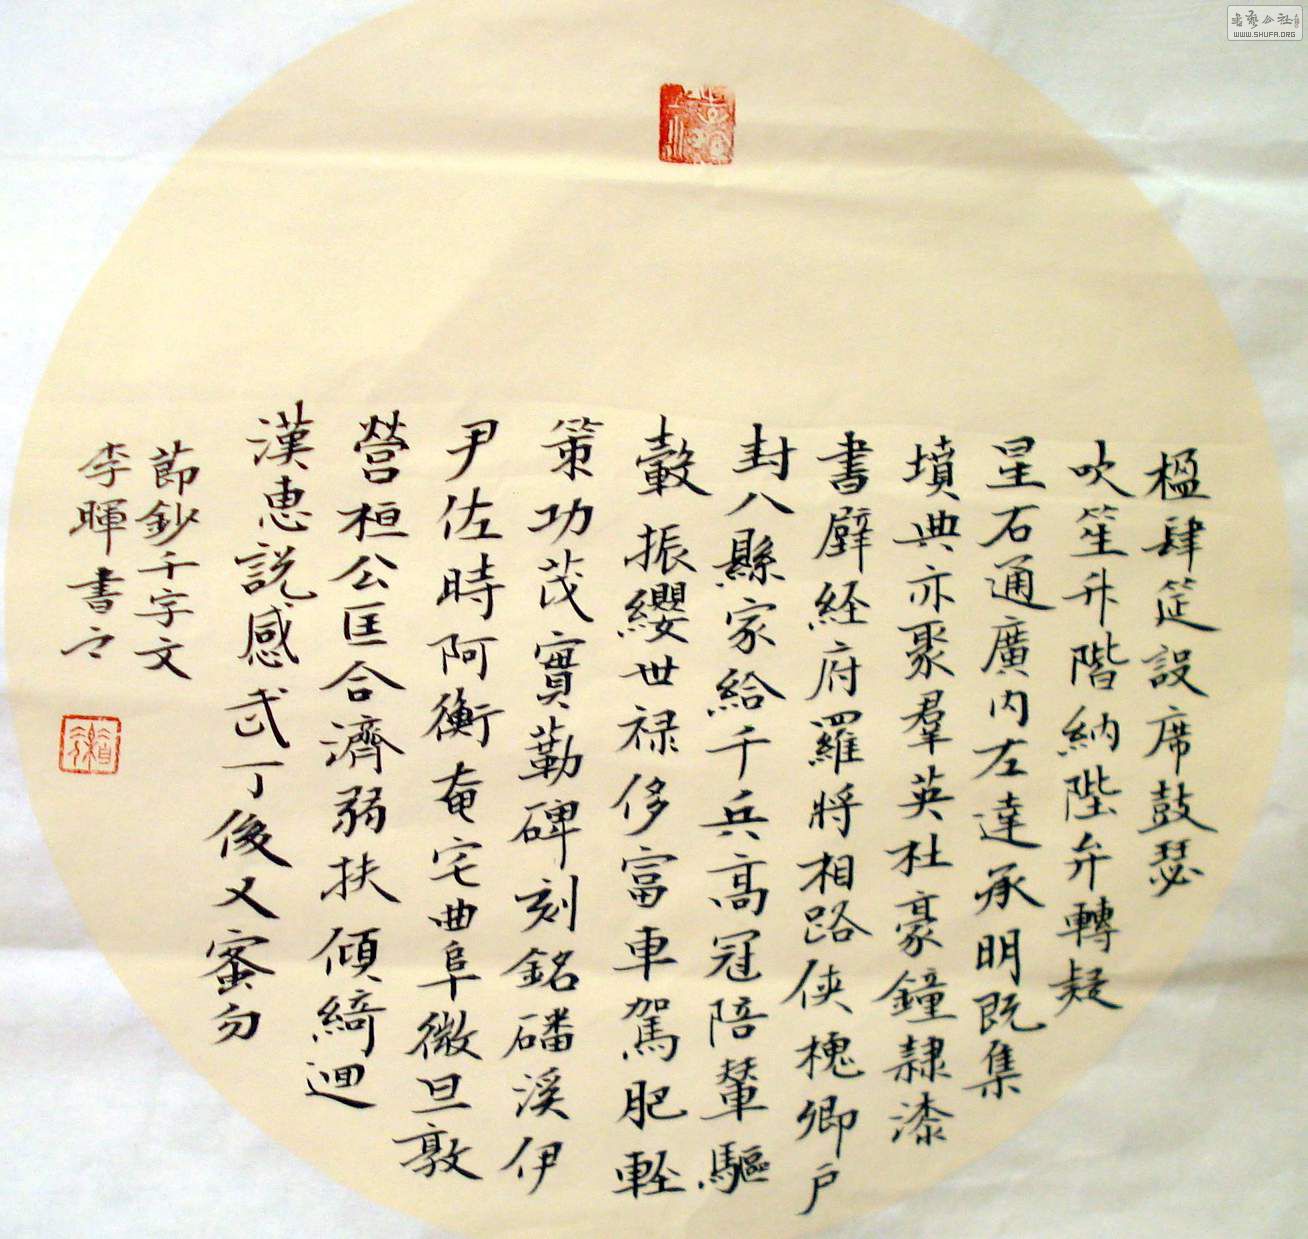 楹肆筵設席鼓瑟
吹笙升階納陛弁轉疑
星石通廣內左達承明既集
墳典亦聚群英杜豪鐘隸漆
書壁経府羅將相路俠槐卿戶
封八縣家給千兵高冠陪輦驅
轂振纓世禄侈富車駕肥軽
策功茂實勒碑刻銘磻溪伊
尹佐時阿衡奄宅曲阜微旦孰
營桓公匡合濟弱扶傾綺迴
漢惠説感武丁俊乂密勿
節鈔千字文
李暉書之
書藝公社
WWW.SHUFA.ORG